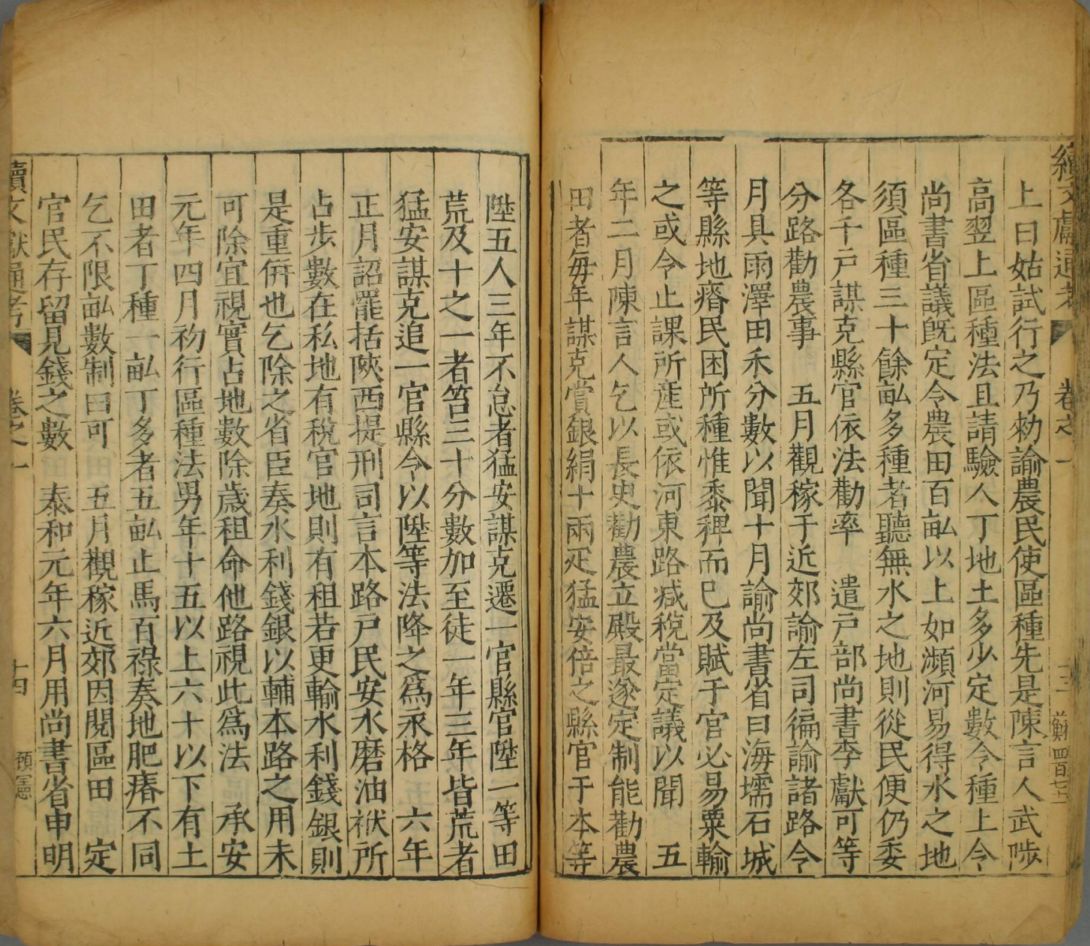 續文獻通考 卷之一
上曰姑試行之乃勑諭農民使區種先是陳言人武陟
高翌上區種法且請驗人丁地土多少定數令種上令
尚書省議旣定令農田百畝以上如瀕河易得水之地
須區種三十餘畝多種者聽無水之地則從民便仍委
各千戸謀克縣官依法勸率 遣戸部尚書李獻可等
分路勸農事 五月觀稼于近郊諭左司徧諭諸路令
月具雨澤田禾分數以聞十月諭尚書省曰海壖石城
等縣地瘠民困所種惟黍稗而已及賦于官必易粟輸
之或令止課所産或依河東路减稅當定議以聞 五
年二月陳言人乞以長吏勸農立殿最遂定制能勸農
田者每年謀克賞銀絹十兩疋猛安倍之縣官于本等
陞五人三年不怠者猛安謀克遷一官縣官陞一等田
荒及十之一者笞三十分數加至徒一年三年皆荒者
猛安謀克追一官縣令以陞等法降之爲永格 六年
正月詔罷括陜西提刑司言本路戸民安水磨油栿所
占步數在私地有稅官地則有租若更輸水利錢銀則
是重併也乞除之省臣奏水利錢銀以輔本路之用未
可除宜視實占地數除歲租命他路視此爲法 承安
元年四月初行區種法男年十五以上六十以下有土
田者丁種一畝丁多者五畝止馬百祿奏地肥瘠不同
乞不限畝數制曰可 五月觀稼近郊因閱區田 定
官民存留見錢之數 泰和元年六月用尚書省申明
續文獻通考 卷之一 十四